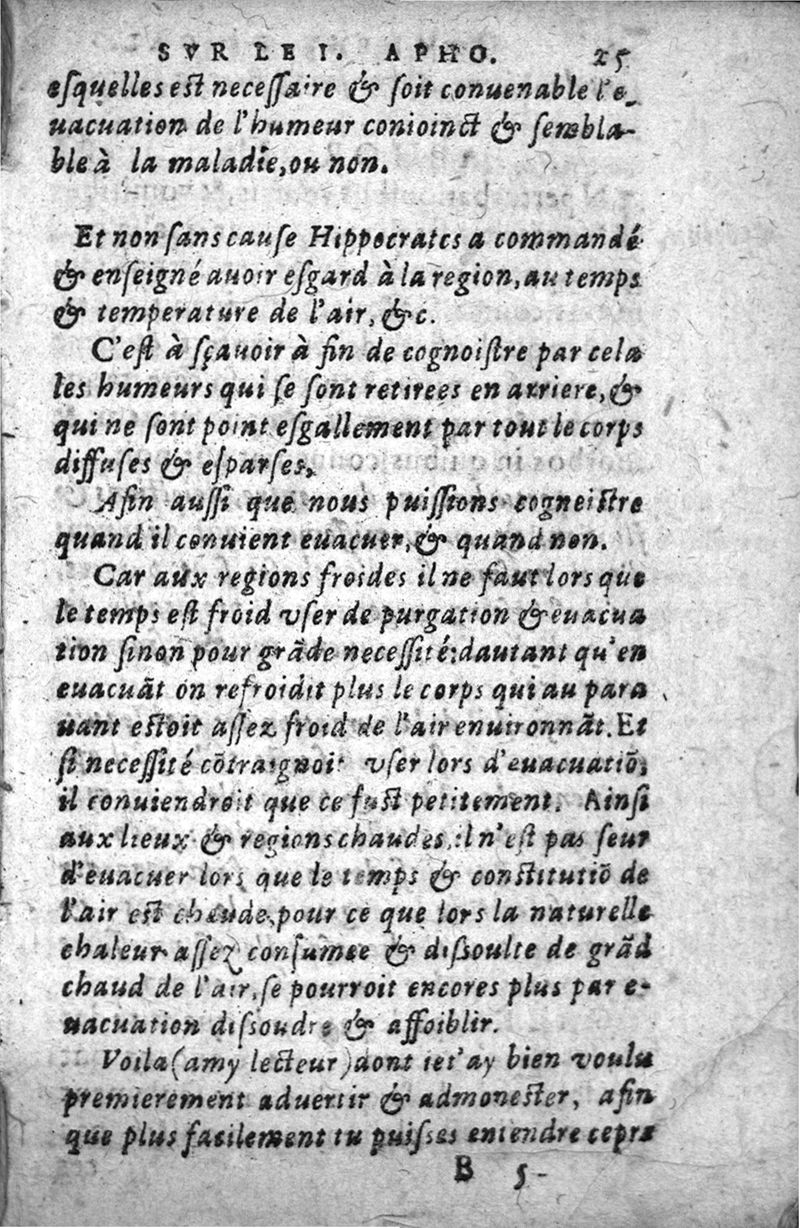 SVR LE I. APHO. 25
esquelles est necessaire & soit conuenable l'e-
uacuation de l'humeur conioinct & sembla-
ble à la maladie, ou non.
Et non sans cause Hippocrates a commandé
& enseigné auoir esgard à la region, au temps
& temperature de l'air, &c.
C'est à sçauoir à fin de cognoistre par cela
les humeurs qui se sont retirees en arriere, &
qui ne sont point esgallement par tout le corps
diffuses & esparses.
Afin aussi que nous puissions cogneistre
quand il conuient euacuer, & quand non.
Car aux regions froides il ne faut lors que
le temps est froid vser de purgation & euacua
tion sinon pour grãde necessité: dautant qu'en
euacuãt on refroidit plus le corps qui au para
uant estoit assez froid de l'air enuironnãt. Et
si necessité cõtraignoit vser lors d'euacuatiõ,
il conuiendroit que ce fust petitement. Ainsi
aux lieux & regions chaudes, il n'est pas seur
d'euacuer lors que le temps & constitutiõ de
l'air est chaude, pour ce que lors la naturelle
chaleur assez consumee & dissoulte de grãd
chaud de l'air, se pourroit encores plus par e-
uacuation dissoudre & affoiblir.
Voila (amy lecteur) dont ie t'ay bien voulu
premierement aduertir & admonester, afin
que plus facilement tu puisses entendre ce pre
B 5